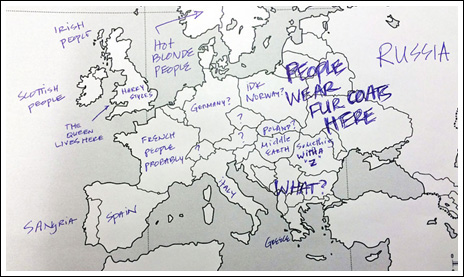 IRISH
PEOPLE
HOT
BLONDE
PEOPLE
RUSSIA
SCOTTISH
PEOPLE
HARRY
STYLES
THE
QUEEN
LIVES HERE
GERMANY?
IDK
NORWAY?
PEOPLE
WEAR
FUR COATS
HERE
?
FRENCH
PEOPLE
PROBABLY
?
?
?
POLAND?
MIDDLE
EARTH
SOMETHING
WITH A
"Z"
WHAT?
ITALY
SANGRIA
SPAIN
GREECE!